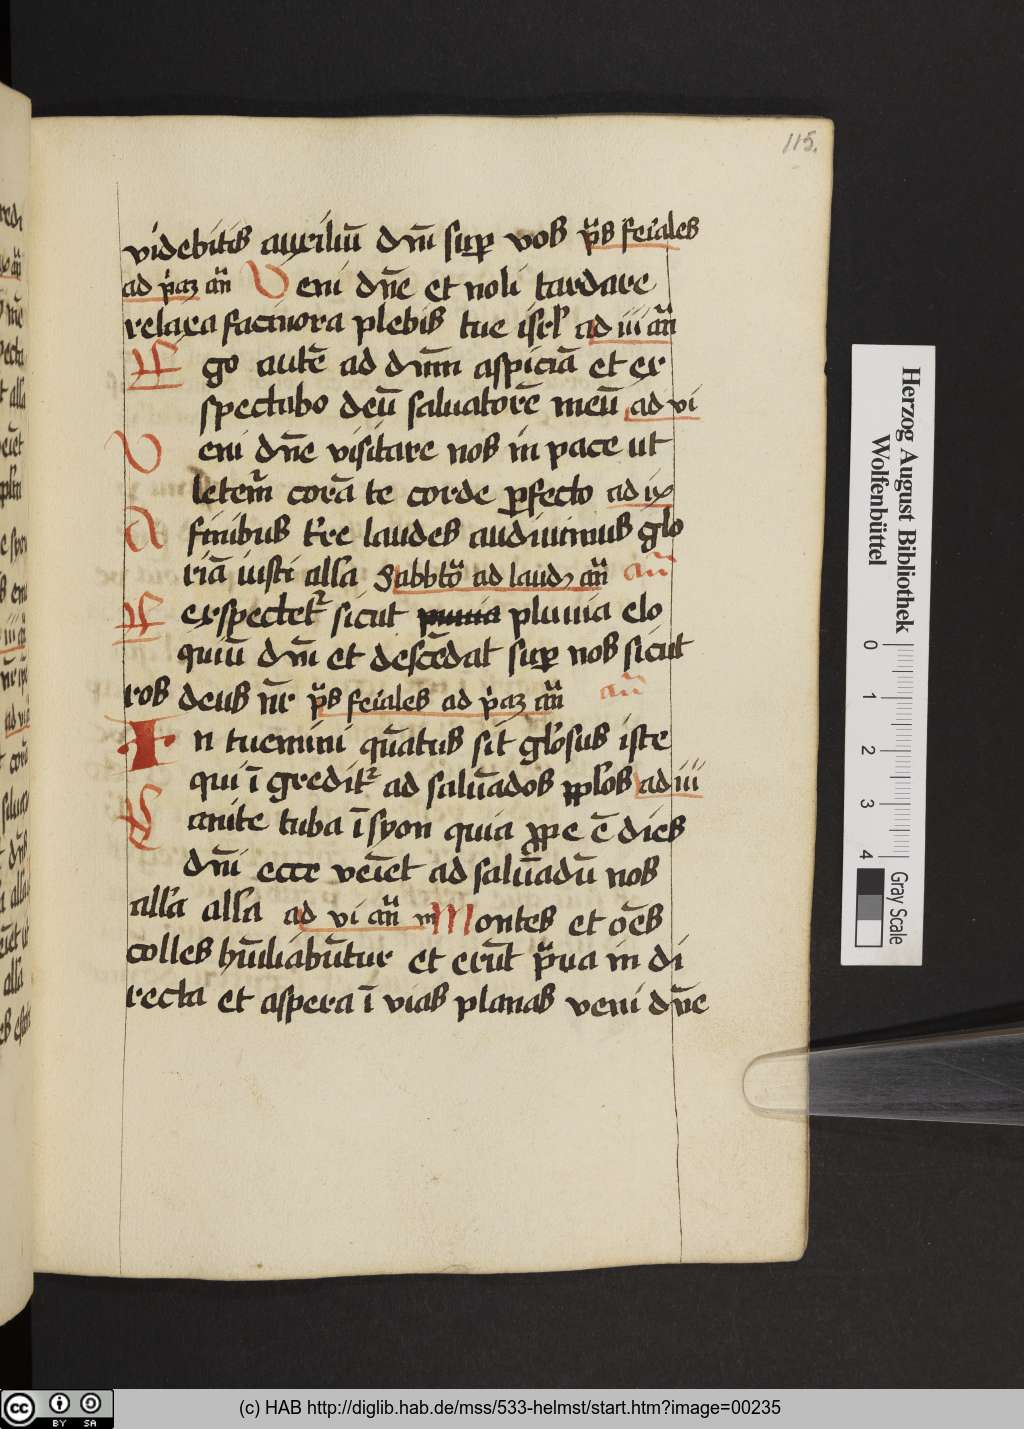 115.
videbitis auxiliū dm̄ suꝑ vos p̄s feiales
ad p̄aȝ an̄ Veni dn̄e et noli tardare
relaxa facinora plebis tue isrl' ad iii an̄
Ego autē ad dnm̄ aspiciā et ex
spectabo deū saluatorē meū ad vi
Veni dn̄e visitare nos in pace ut
letem̄ corā te corde ꝑfecto ad ix
A finibus t're laudes audiuimus glo
riā iusti alla Sabbto ad laud an̄ an̄
Exspectet sicut pluuia elo
quiū dn̄i et descēdat suꝑ nos sicut
ros deus nr̄ p̄s feiales ad p̄aȝ an̄ an̄
In tuemini qua̅tus sit glo'sus iste
qui ī gredit ad salua̅dos pplos ad iii
Canite tuba ī syon quia ꝓpe ē dies
dn̄i ecce veīet ad salua̅dū nos
alla alla ad vi an̄ m Montes et oēs
colles hūiliabūtur et erūt p̄ua in di
recta et aspera ī vias planas veni dn̄e
Herzog August Bibliothek
Wolfenbüttel
0 1 2 3 4
Gray Scale
cc BY SA
(c) HAB http://diglib.hab.de/mss/533-helmst/start.htm?image=00235